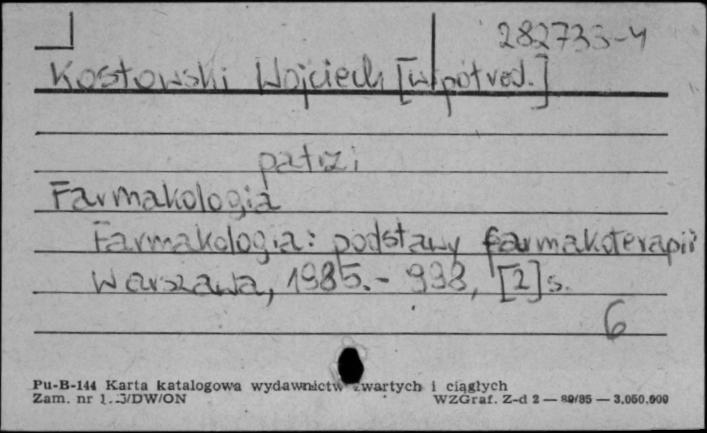 282733-4
Kostowski Wojciech [współred.]
patrz:
Farmakologia
Farmakologia: podstawy farmakoterapii
Warszawa, 1985. - 998, [2] s.
6
Pu-B-144 Karta katalogowa wydawnictw zwartych i ciągłych
Zam. nr /DW/ON WZGraf. Z-d 2 — 80/85 — 3.050.000